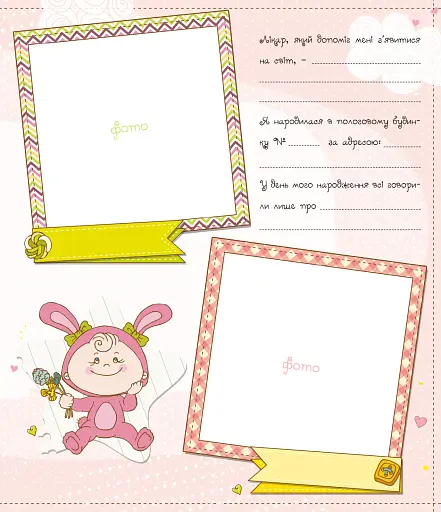 Лікар, який допоміг мені з'явитися
на світ, –
Я народилася в пологовому будин-
ку № за адресою:
У день мого народження всі говори-
ли лише про
фото
фото